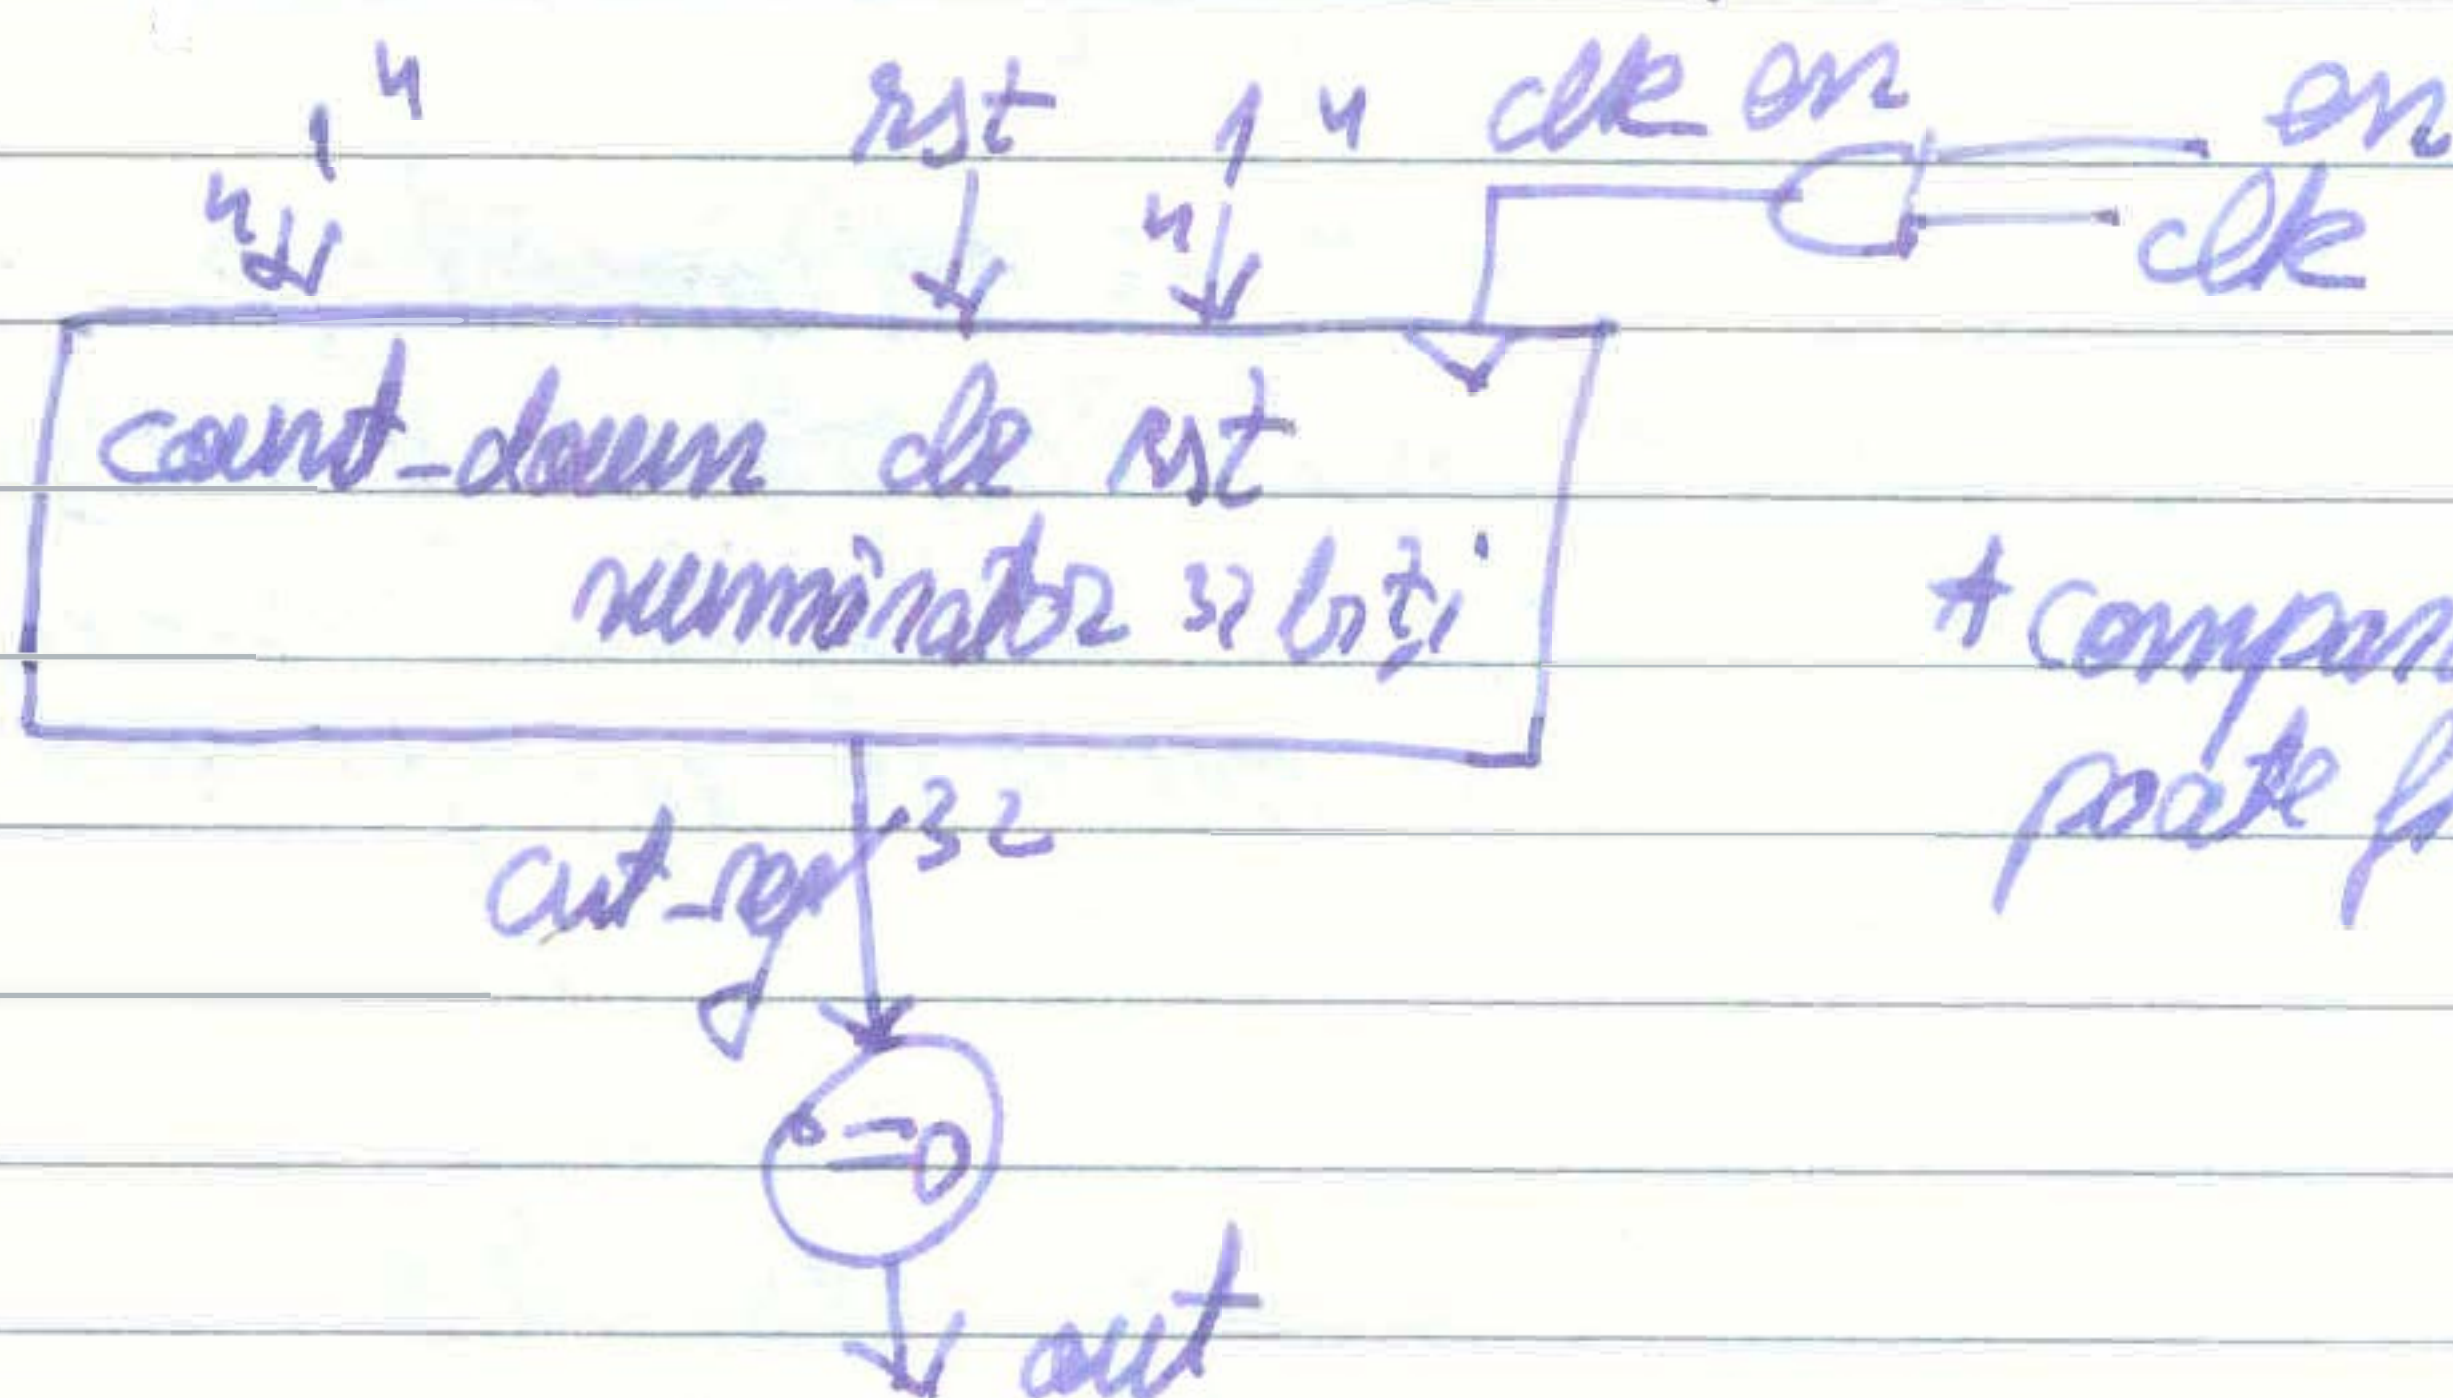 "1" rst "1" clk en en
clk
count_down ck rst
numărător 32 biți
* compar
poate f
cnt_reg 32
== 0
out